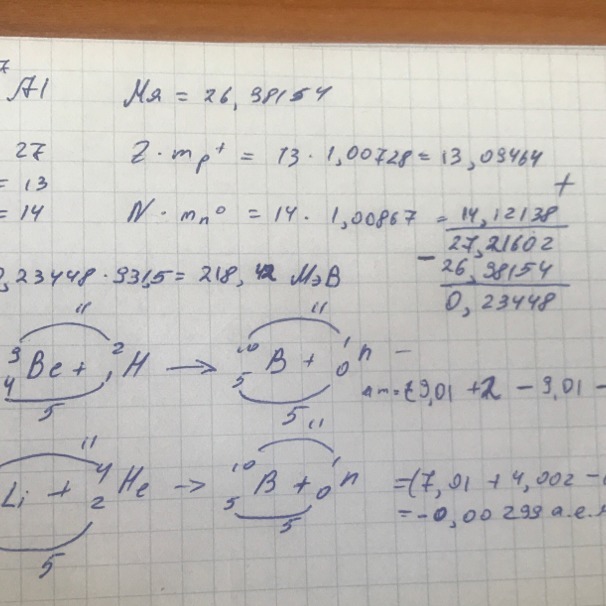 7
Al Mя = 26,98154
27 Z · mp+ = 13 · 1,00728 = 13,09464
= 13 +
= 14 N · mn0 = 14 · 1,00867 = 14,12138
27,21602
− 26,98154
0,23448
0,23448 · 931,5 = 218,42 МэВ
11 11
9 4 Be + 2 1 H → 10 5 B + 1 0 n −
5 5
Δm = (9,01 + 2 − 9,01 −
11 11
Li + 4 2 He → 10 5 B + 1 0 n = (7,01 + 4,002 −
5 5
= −0,00299 а.е.